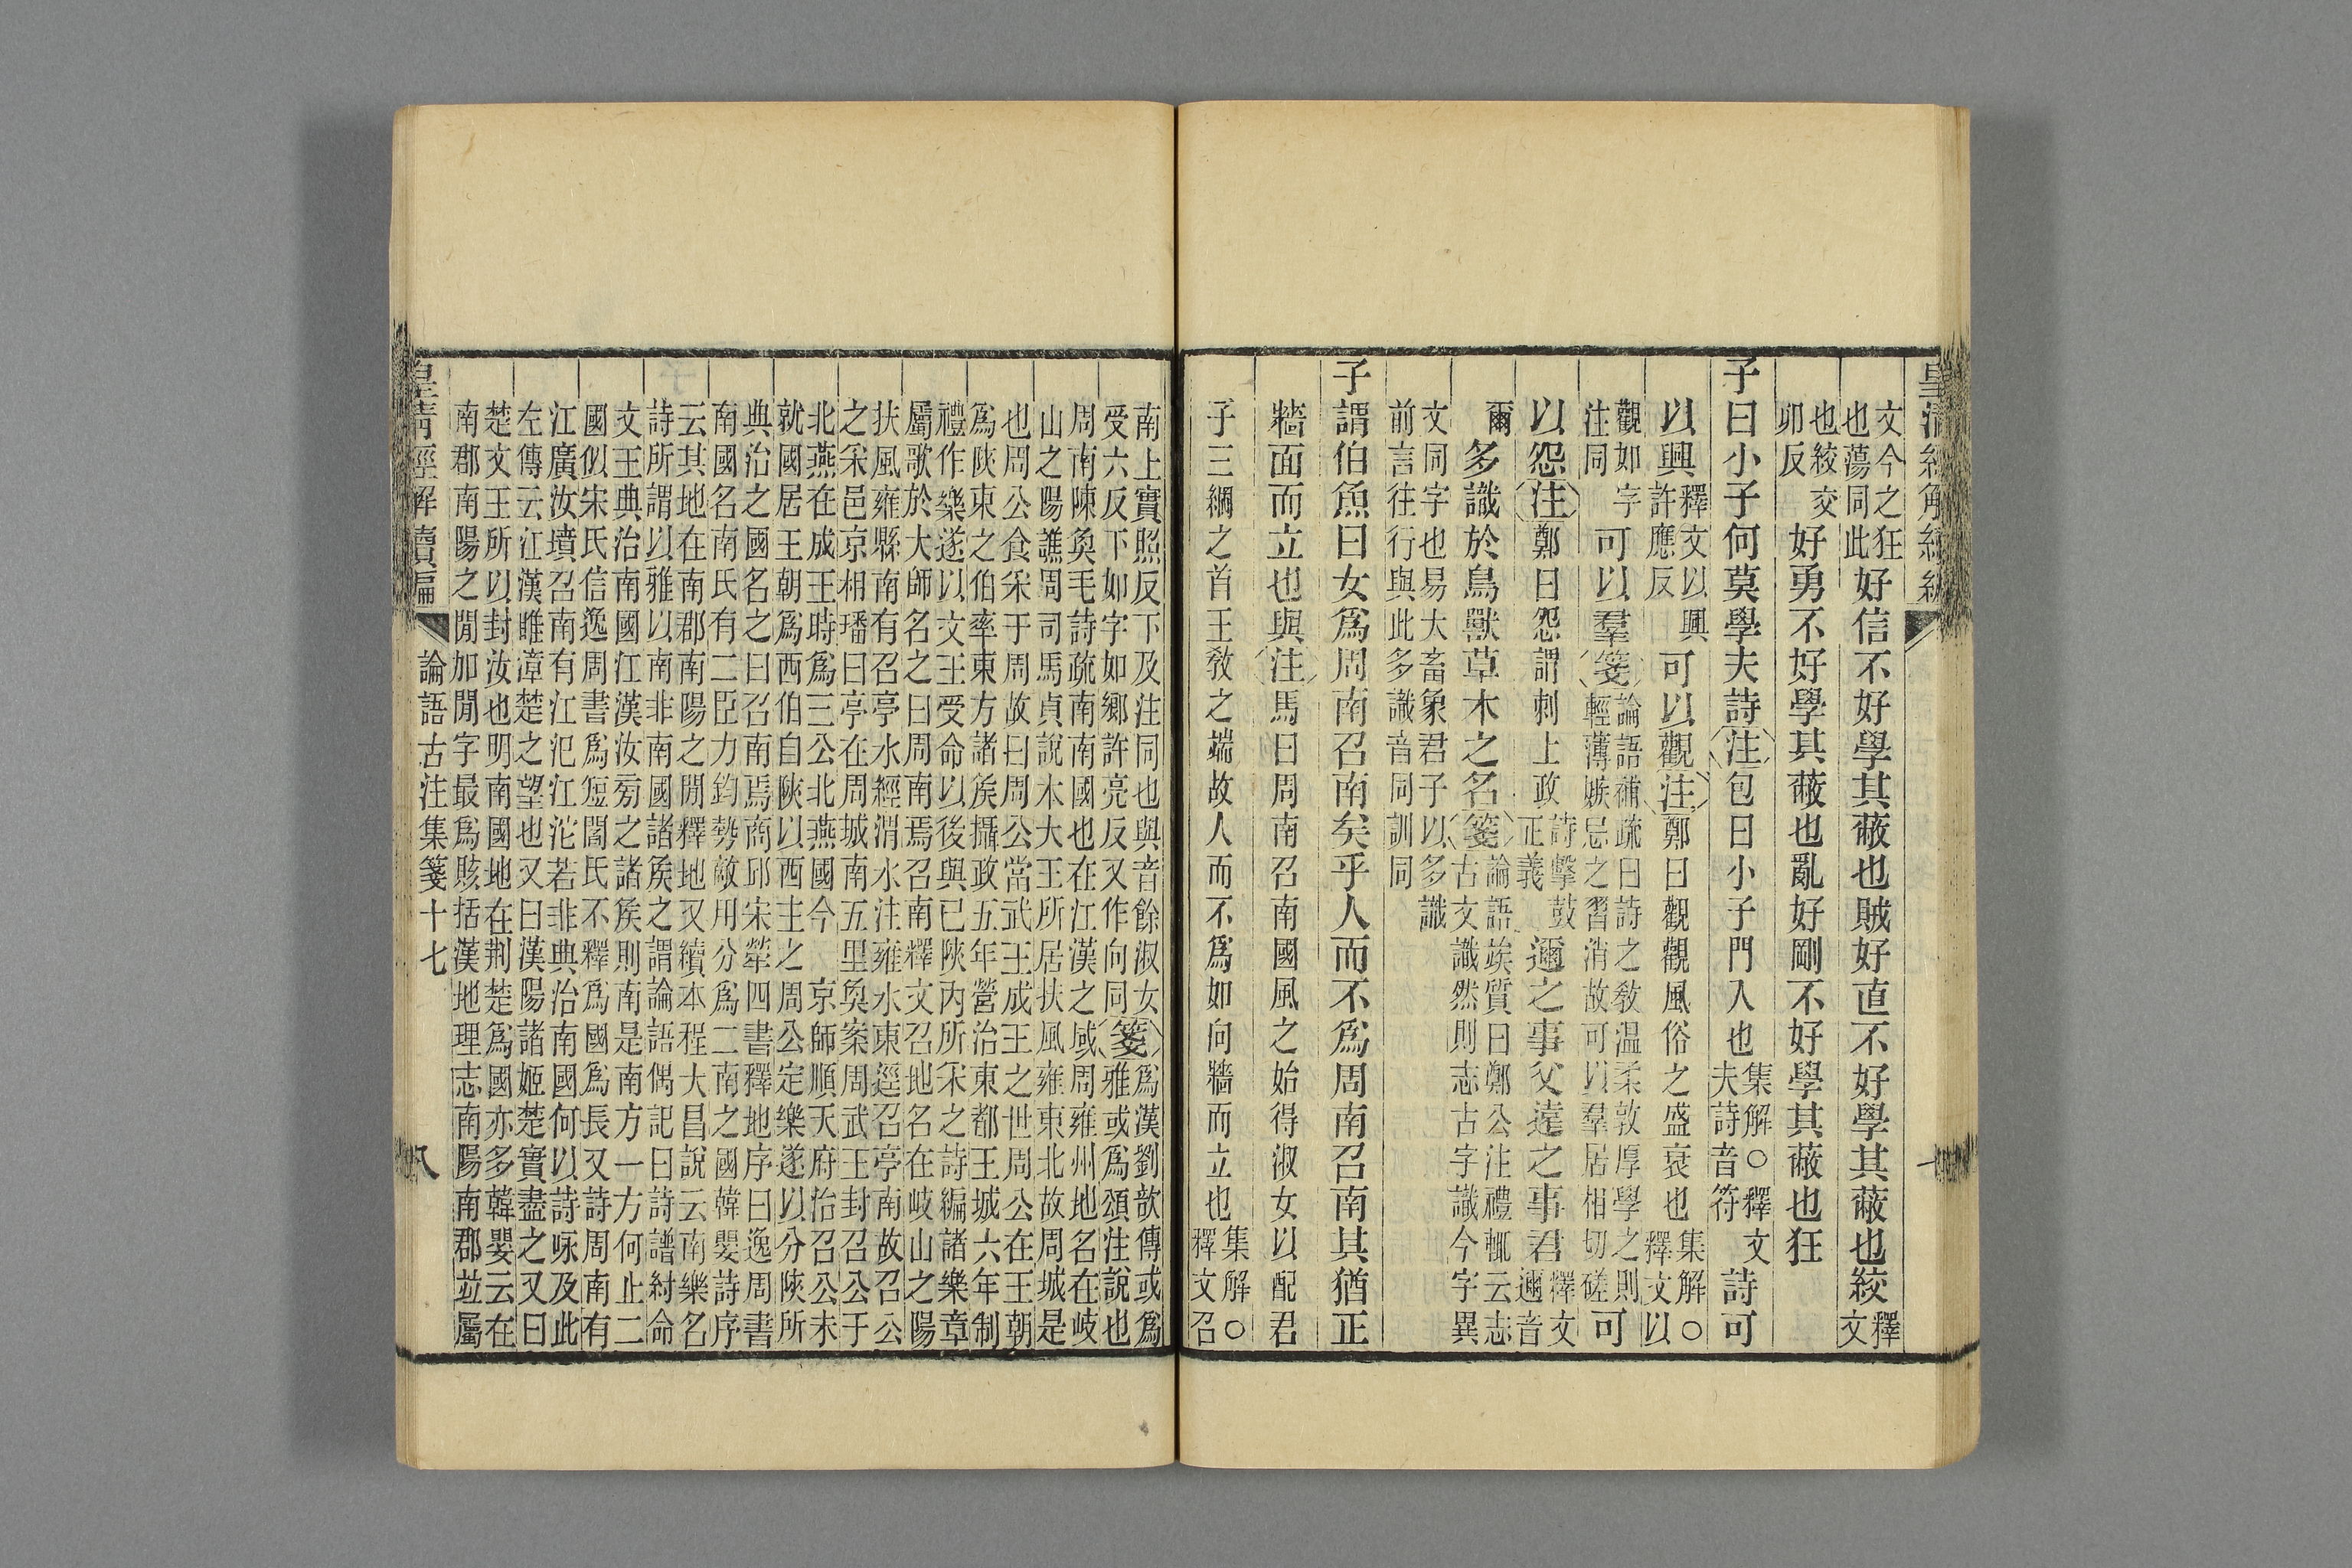 文今之狂也蕩同此好信不好學其蔽也賊好直不好學其蔽也絞釋文
也絞交卯反好勇不好學其蔽也亂好剛不好學其蔽也狂
子曰小子何莫學夫詩注包曰小子門人也集解○釋文夫詩音符詩可
以興釋文以興許應反可以觀注鄭曰觀觀風俗之盛衰也集解○釋文以
觀如字注同可以羣箋論語補疏曰詩之敎温柔敦厚學之則輕薄嫉忌之習消故可以羣居相切磋可
以怨注鄭曰怨謂刺上政詩擊鼓正義邇之事父遠之事君釋文邇音
爾多識於鳥獸草木之名箋論語竢質曰鄭公注禮輒云志古文識然則志古字識今字異
文同字也易大畜象君子以多識前言往行與此多識音同訓同
子謂伯魚曰女爲周南召南矣乎人而不爲周南召南其猶正
牆面而立也與注馬曰周南召南國風之始得淑女以配君
子三綱之首王敎之端故人而不爲如向牆而立也集解○釋文召
南上實照反下及注同也與音餘淑女受六反下如字如鄉許亮反又作向同箋爲漢劉歆傳或爲雅或爲頌注說也
周南陳奐毛詩疏南南國也在江漢之域周雍州地名在岐
山之陽譙周司馬貞說本大王所居扶風雍東北故周城是
也周公食采于周故曰周公當武王成王之世周公在王朝
爲陝東之伯率東方諸矦攝政五年營治東都王城六年制
禮作樂遂以文王受命以後與已陝內所采之詩編諸樂章
屬歌於大師名之曰周南焉召南釋文召地名在岐山之陽
扶風雍縣南有召亭水經渭水注雍水東逕召亭南故召公
之采邑京相璠曰亭在周城南五里奐案周武王封召公于
北燕在成王時爲三公北燕國今京師順天府治召公未
就國居王朝爲西伯自陝以西主之周公定樂遂以分陝所
典治之國名之曰召南焉商邱宋犖四書釋地序曰逸周書
南國名南氏有二臣力鈞勢敵用分爲二南之國韓嬰詩序
云其地在南郡南陽之閒釋地又續本程大昌說云南樂名
詩所謂以雅以南非南國諸矦之謂論語偶記曰詩譜紂命
文王典治南國江漢汝旁之諸矦則南是南方一方何止二
國似宋氏信逸周書爲短閻氏不釋爲國爲長又詩周南有
江廣汝墳召南有江汜江沱若非典治南國何以詩咏及此
左傳云江漢雎漳楚之望也又曰漢陽諸姬楚實盡之又曰
楚文王所以封汝也明南國地在荆楚爲國亦多韓嬰云在
南郡南陽之閒加閒字最爲賅括漢地理志南陽南郡竝屬
皇清經解續編 論語古注集箋十七 八